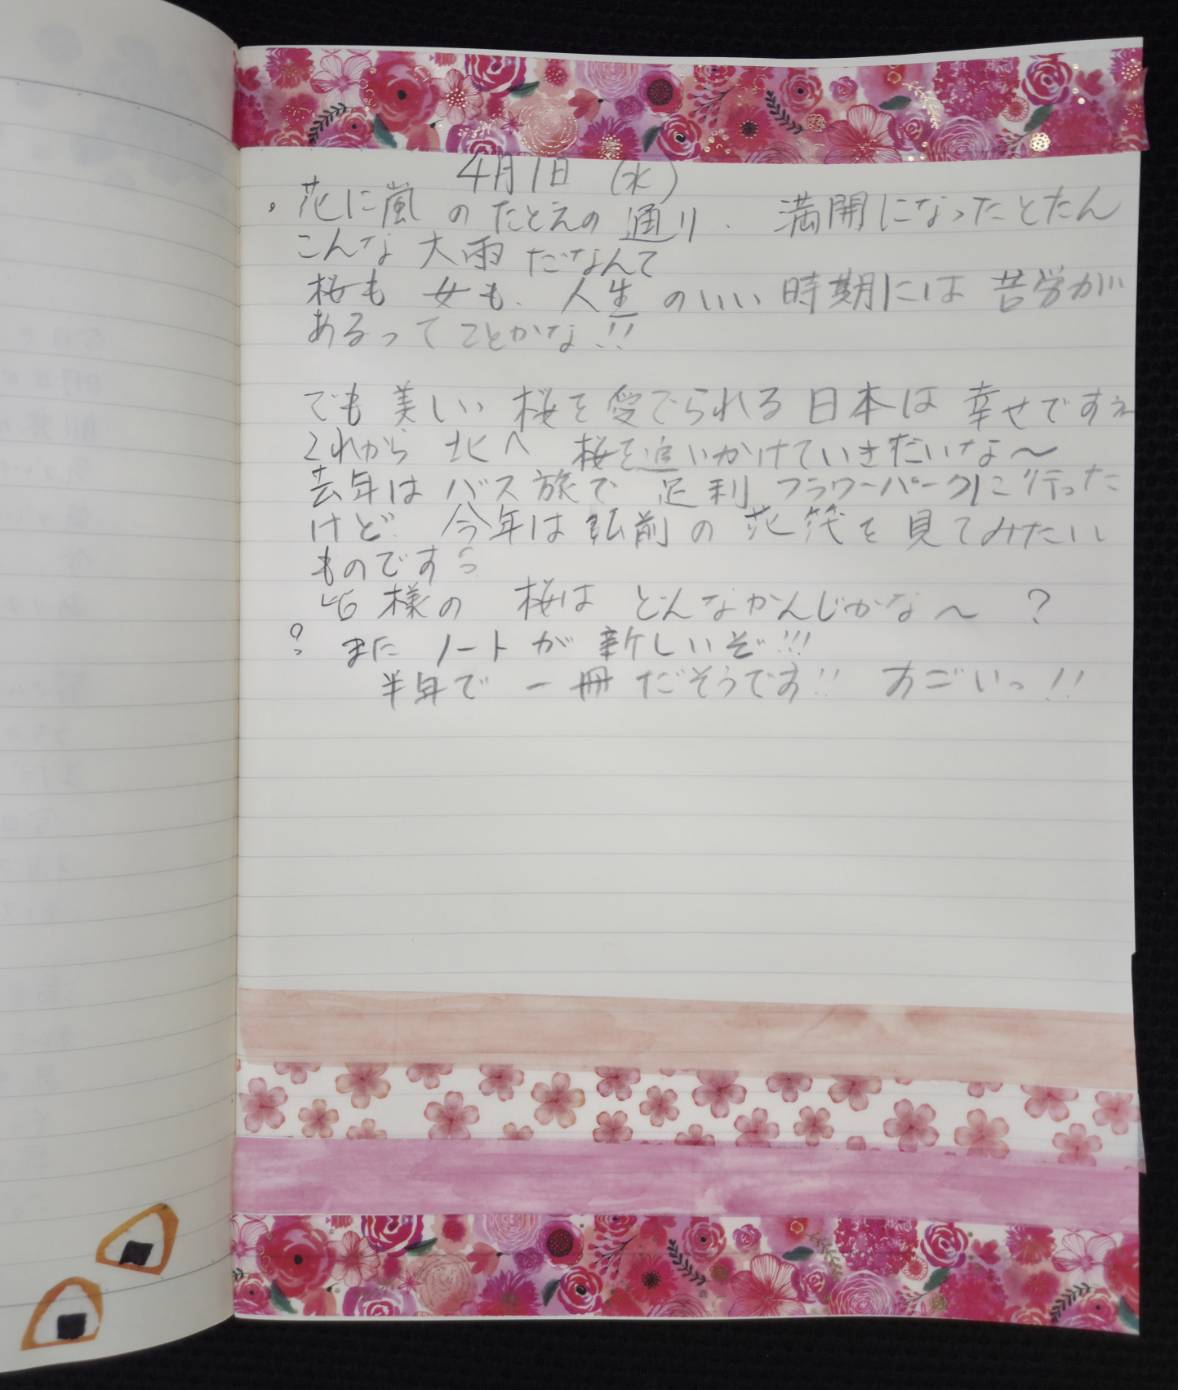 4月1日（水）
。花に嵐のたとえの通り、満開になったとたん
こんな大雨だなんて
桜も女も、人生のいい時期には苦労が
あるってことかな!!
でも美しい桜を愛でられる日本は幸せですね
これから北へ桜を追いかけていきたいな〜
去年はバス旅で足利フラワーパークに行った
けど、今年は弘前の花筏を見てみたい
ものですら
皆様の桜はどんなかんじかな〜？
？またノートが新しいぞ!!!
半年で一冊だそうです!!すごいっ!!